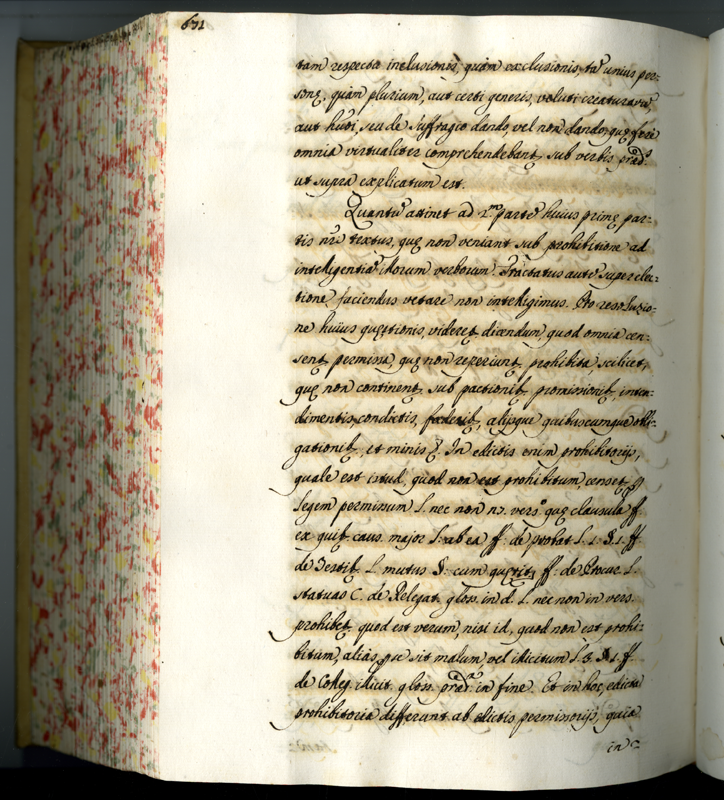 671
tam respectu inclusionis, quàm exclusionis, tã unius per-
sonę, quàm plurium, aut certi generis, veluti creaturarũ
aut hui, seu de suffragio dando, vel non dando, quę fere
omnia virtualiter comprehendebant sub verbis præd.s
ut supra explicatum est.
Quantũ attinet ad 2.m partẽ huius primę par-
tis nri textus, quę non veniant sub prohibitione ad
intelligentiã illorum verborum. Tractatus autẽ super elec-
tione faciendus vetare non intelligimus. Pro resoluzio-
ne huius quęstionis, videret dicendum, quod omnia cen-
sent permissa, quę non reperiunt prohibita scilicet,
quę non continent sub pactionib, promissionib, inten-
dimentis, condictis, fœderib, alijsque quibuscumque obli-
gationib, et minis. In edictis enim prohibitorijs,
quale est istud, quod non est prohibitum censet p
legem permissum l. nec non n. vers.o quę clausula ff.
ex quib. caus. major l: ab ea ff: de probat l. 1. §. 1. ff.
de Testib. l. mutus §: cum quęrit, ff: de Procur. l.
statuas C. de Relegat. gloss. in d. l. nec non in vers.
prohibet quod est verum, nisi id, quod non est prohi-
bitum, aliàs, p se sit malum, vel illicitum l. 3. §. 1. ff.
de Colleg. illicit. gloss. præd.a in fine. Et in hoc edicta
prohibitoria differunt ab edictis permissorijs, quia
in